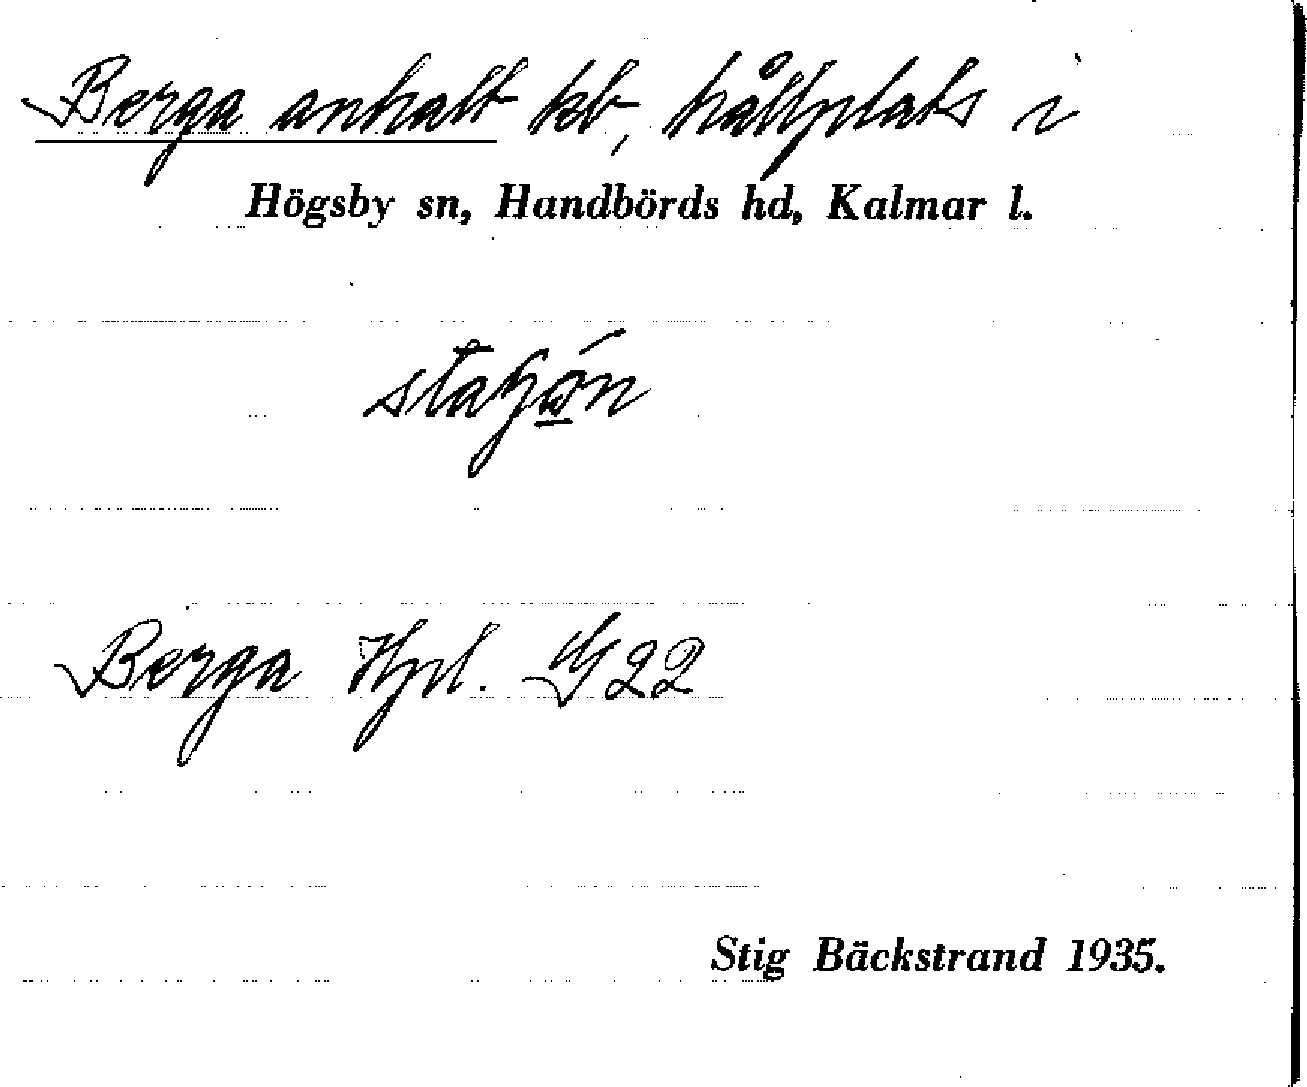 Berga anhalt kb, hållplats i
Högsby sn, Handbörds hd, Kalmar l.
Berga Hpl. G 22
Stig Bäckstrand 1935.